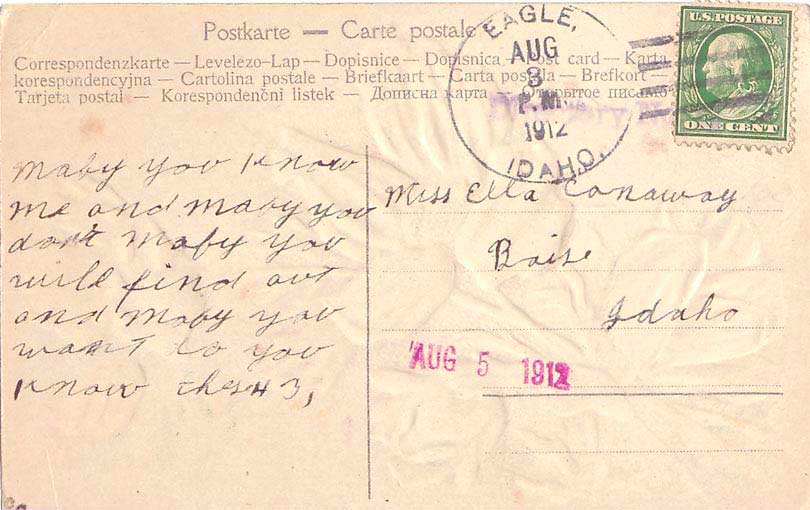 Postkarte — Carte postale
Correspondenzkarte — Levelezo-Lap — Dopisnice — Dopisnica — Post card — Karta
korespondencyjna — Cartolina postale — Briefkaart — Carta postala — Brefkort —
Tarjeta postal — Korespondenční listek — Дописна карта — Открытое письмо
EAGLE,
AUG
3
P.M.
1912
IDAHO.
U.S. POSTAGE
ONE CENT
maby you know
me and maby you
don't maby you
will find out
and maby you
want do you
know
Miss Ella Conaway
Boise
Idaho
AUG 5 1912